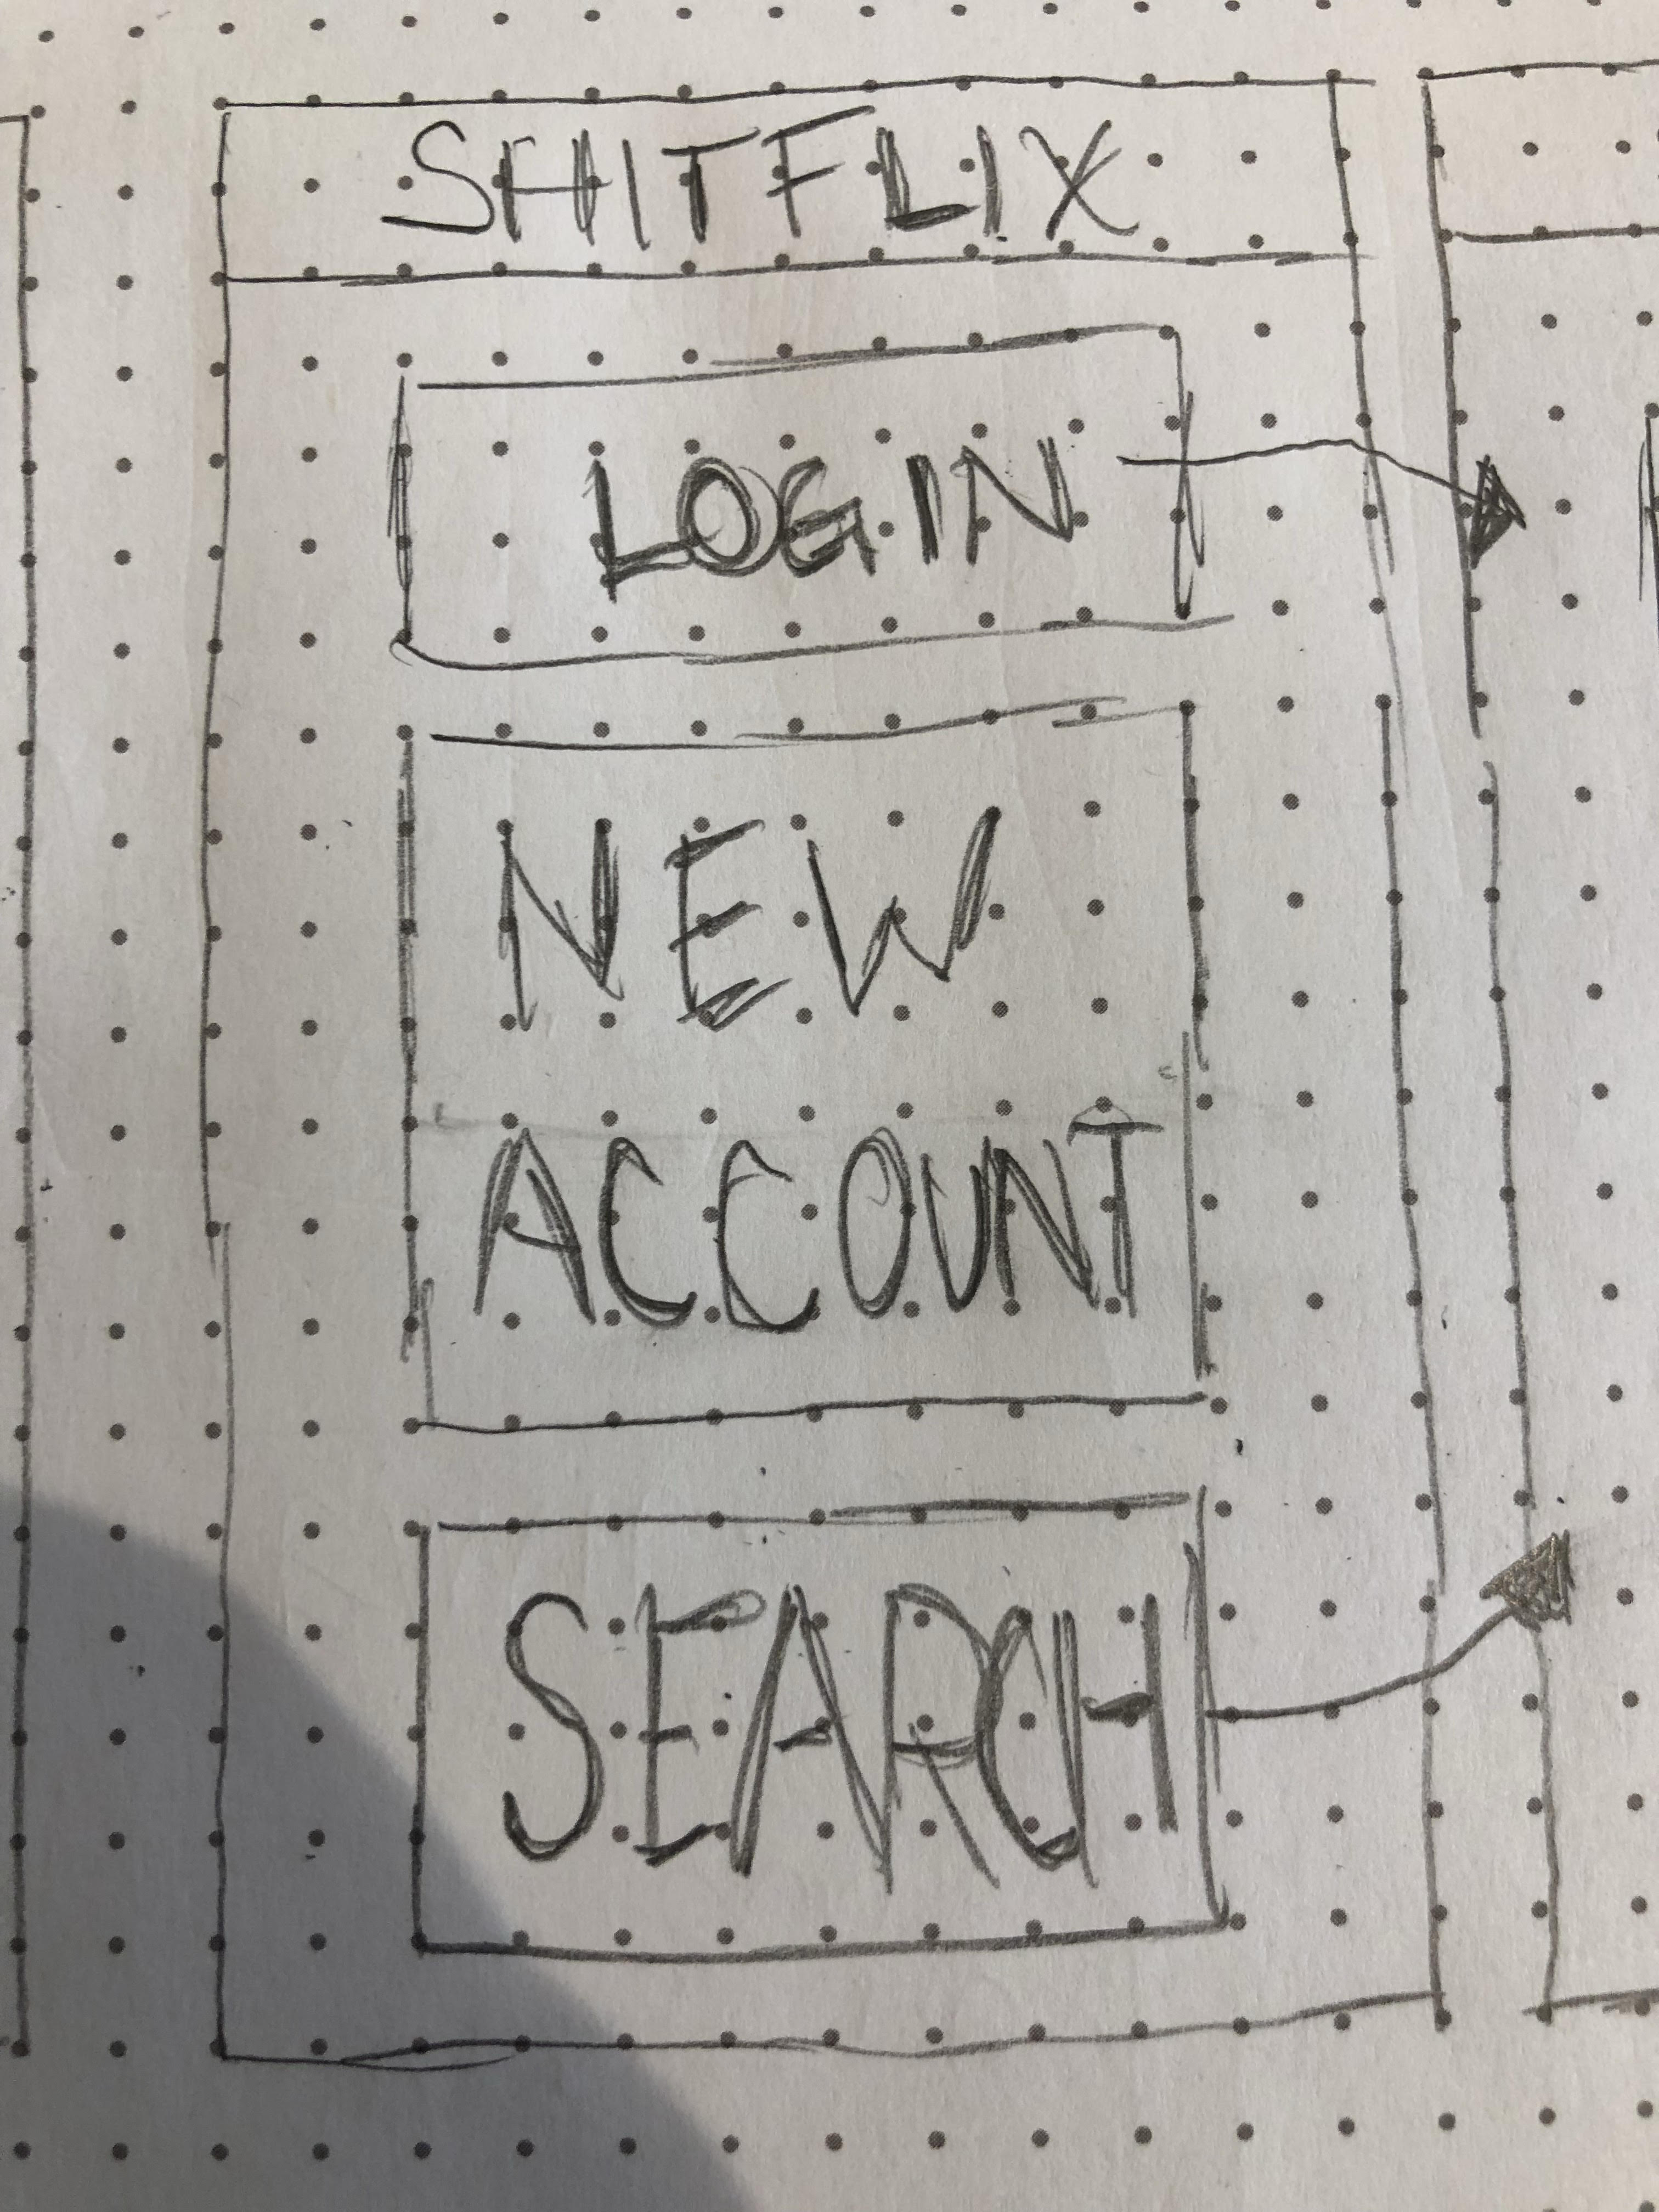 SHITFLIX
LOGIN
NEW
ACCOUNT
SEARCH